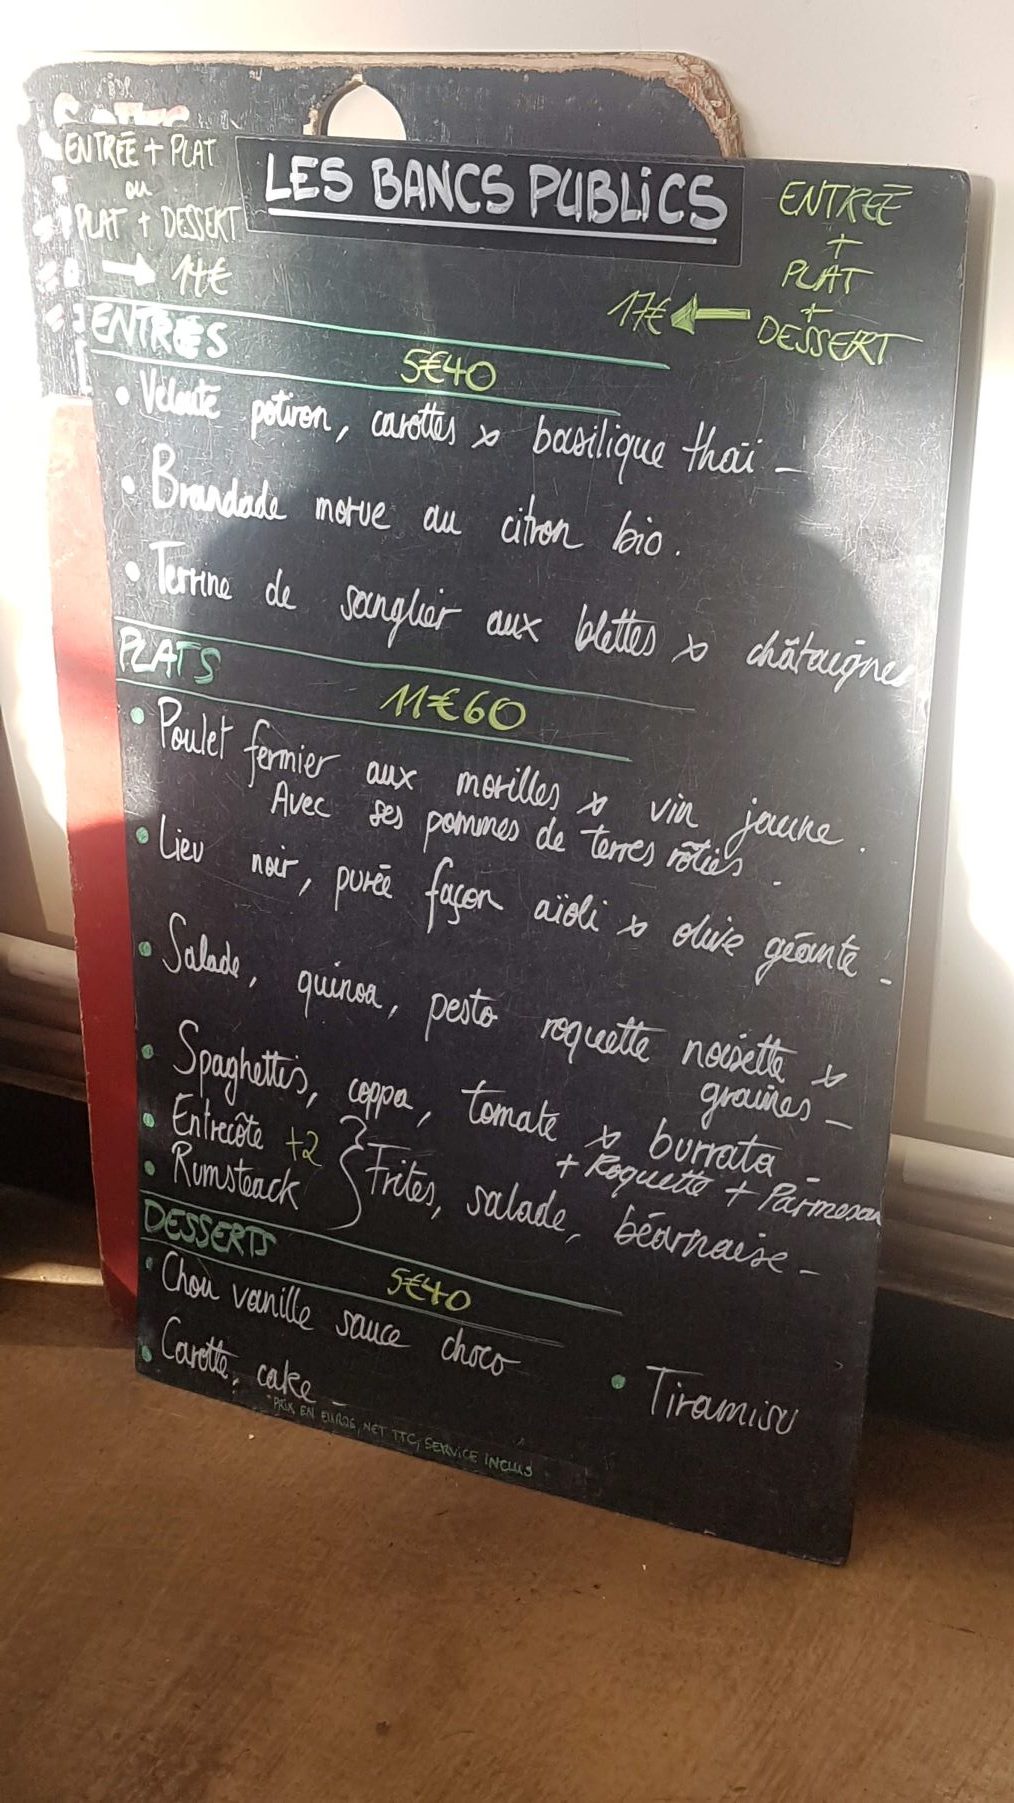 ENTRÉE + PLAT
ou
PLAT + DESSERT
→ 14€
LES BANCS PUBLICS
ENTREE
+
PLAT
+
DESSERT
17€ ←
ENTRÉES
5€40
• Velouté potiron, carottes x basilique thaï –
• Brandade morue au citron bio.
• Terrine de sanglier aux blettes x châtaignes
PLATS
11€60
• Poulet fermier aux morilles x vin jaune.
Avec ses pommes de terres rôties.
• Lieu noir, purée façon aïoli x olive géante –
• Salade, quinoa, pesto roquette noisette x
graines –
• Spaghettis, coppa, tomate x burrata –
+ Roquette + Parmesan
• Entrecôte +2
• Rumsteack } Frites, salade, béarnaise –
DESSERTS
5€40
• Chou vanille sauce choco
• Carotte, cake –
• Tiramisu
*PRIX EN EUROS, NET TTC, SERVICE INCLUS